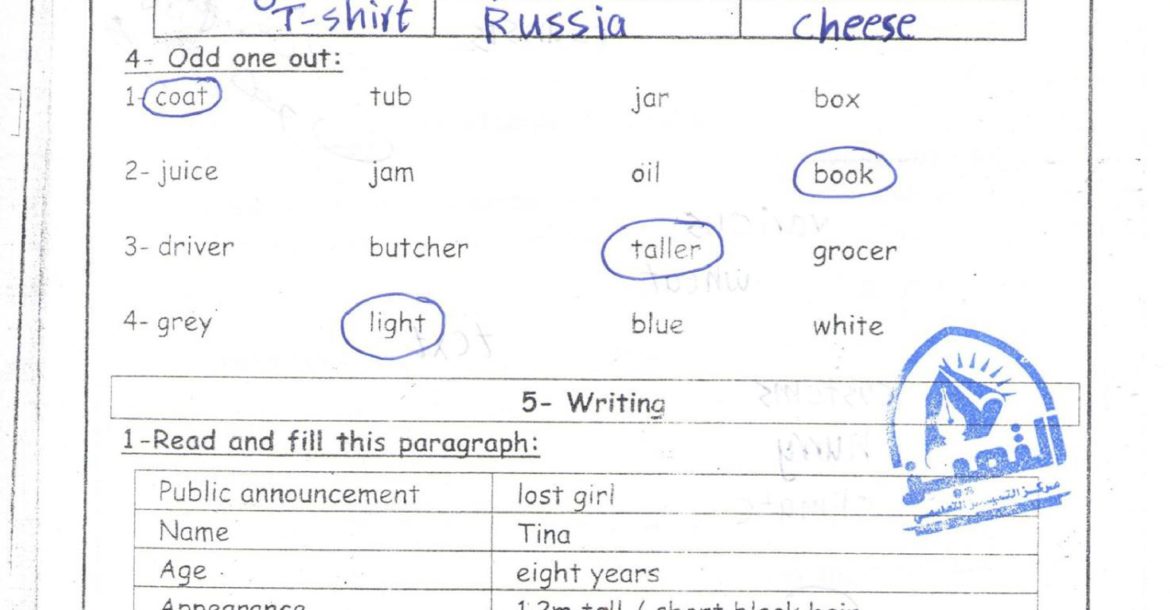 T-shirt Russia cheese
4- Odd one out:
1- coat tub jar box
2- juice jam oil book
3- driver butcher taller grocer
4- grey light blue white
5- Writing
1-Read and fill this paragraph:
Public announcement lost girl
Name Tina
Age eight years
Appearance 1.2m tall / short black hair
التميز
مركز التميز التعليمي